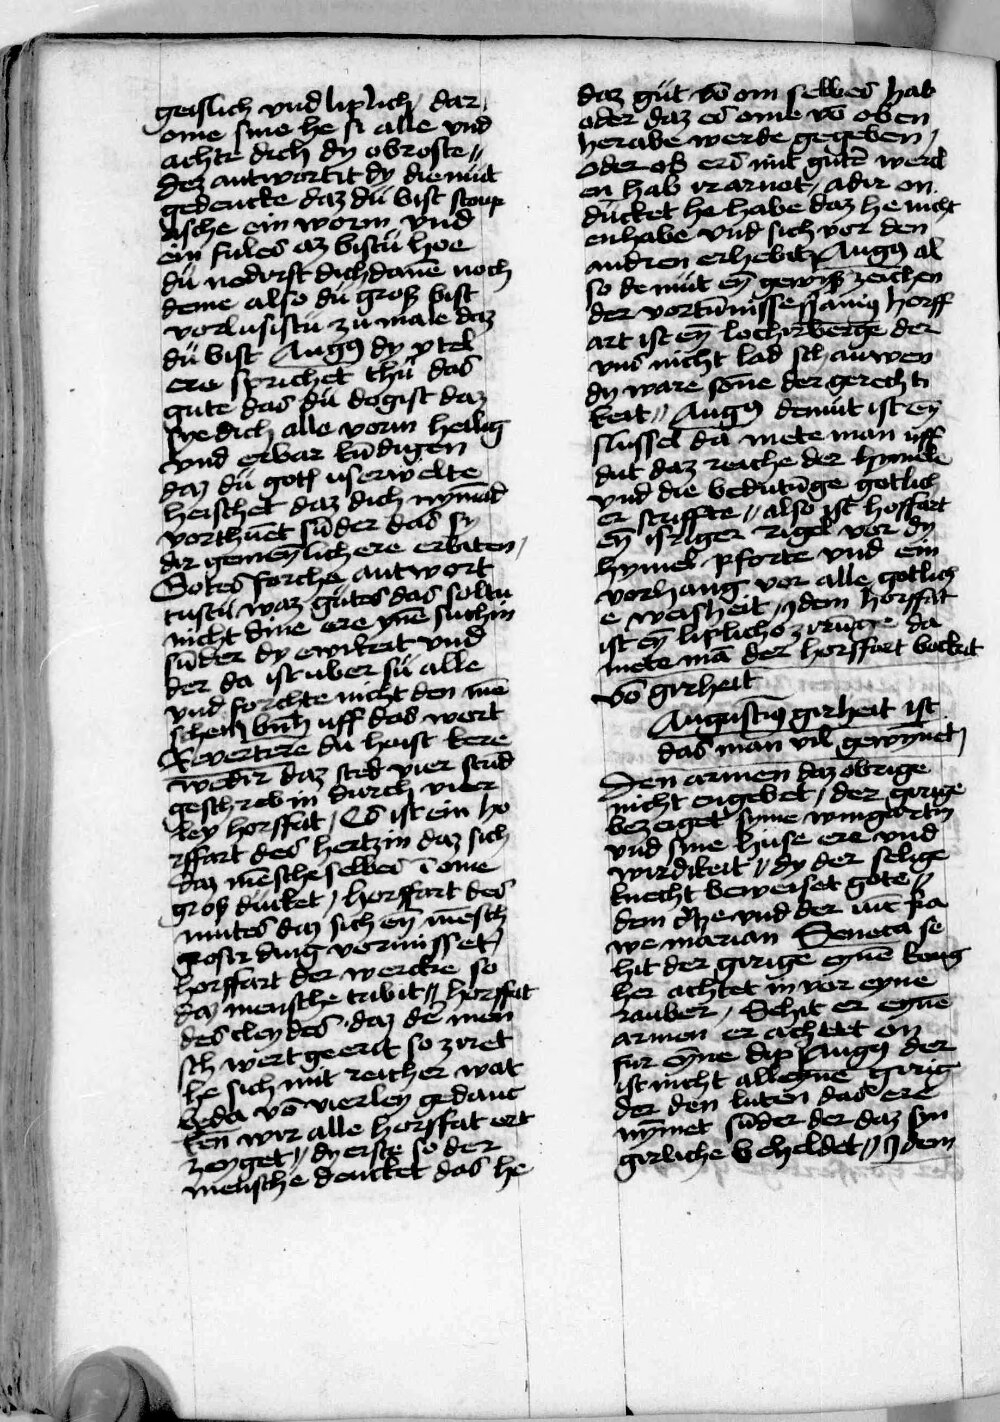 geislich vnd liplich / dar
ome sine he si alle vnd
achte dich dy obroste //
Dez antwortit dy diemut
gedencke daz dü bist stoup
asche ein worm vnd
ein fules az bistu hoe
dü nedirst dich danē noch
deme also dü groß bist
vorlusistu zu male daz
dü bist Augꝰ dy ytel
ere sprichet thü das
gute das dü dogist daz
sye dich alle vorm heilig
vnd erbar kūdigen
daz dü gotß vserwelte
heischet daz dich nymād
vorthuet sūder das sy
dir gemeynlich ere erbiten /
Gotes forche antwort
tustu waz gütes das soltu
nicht dine ere ynē suchin
sūder dy ewikeit vnd
der da ist uber sü alle
vnd forchte nicht den mē
schen uff das wort
Revertere du heist kere
wedir daz sted vier stūd
geschrebin durch vier
ley horffat / Es ist ein ho
rffart des hertzin daz sich
daz mēsche selbes ī ome
groß dücket / horffart des
mutes daz sich eyn mesch
groser ding vormisset /
horffart der wercke so
daz mensche tribit // horffat
des cleydes daz de men
sch wert geerit so ziret
he sich mit reicher wat
beda võ vierley gedanc
ken wir alle horffat ert
zeyget // dy erste so der
mensche dencket das he
daz güt võ om selbes hab
oder daz es ome võ oben
herabe werde gegeben /
oder ob ers mit gutē werck
en hab irarnet / adir on
dücket he habe daz he nicht
enhabe vnd sich vor den
andren erhebit / Augꝰ al
so demüt eyn gewiß zeichen
der vortūmisse horff
art ist eyn berge der
vns nicht lad schauwen
dy ware sōne der gerechti
keit // Augꝰ demüt ist eyn
slussel da mete man uff
dut daz reiche der hymele
vnd die bedutūge gotlich
er scriffte // also ist hoffart
eyn isriger rigel vor dy
hymel pforte vnd ein
vorhang vor alle gotlich
e weisheit / Idem horffat
ist eyn lipliche zciruge da
mete mā der horffart
võ girheit
Augustinꝰ girheit ist
das man vil gewynnet /
Den armen daz obrige
nicht engebet / der girige
bezeiget syme wingartin
vnd sine huse ere vnd
wirdikeit // dy der selige
knecht beweiset gote //
dem vnd der iūcfra
we marian Seneca se
hit der girige eynē konig
her achtet in vor eyne
rauber / Sehit er eynē
armen er achttet on
fur eyne dip Augꝰ der
ist nicht alleyne girig
der den luten das ere
nymet sūder der daz syn
girliche beheldet // Idem